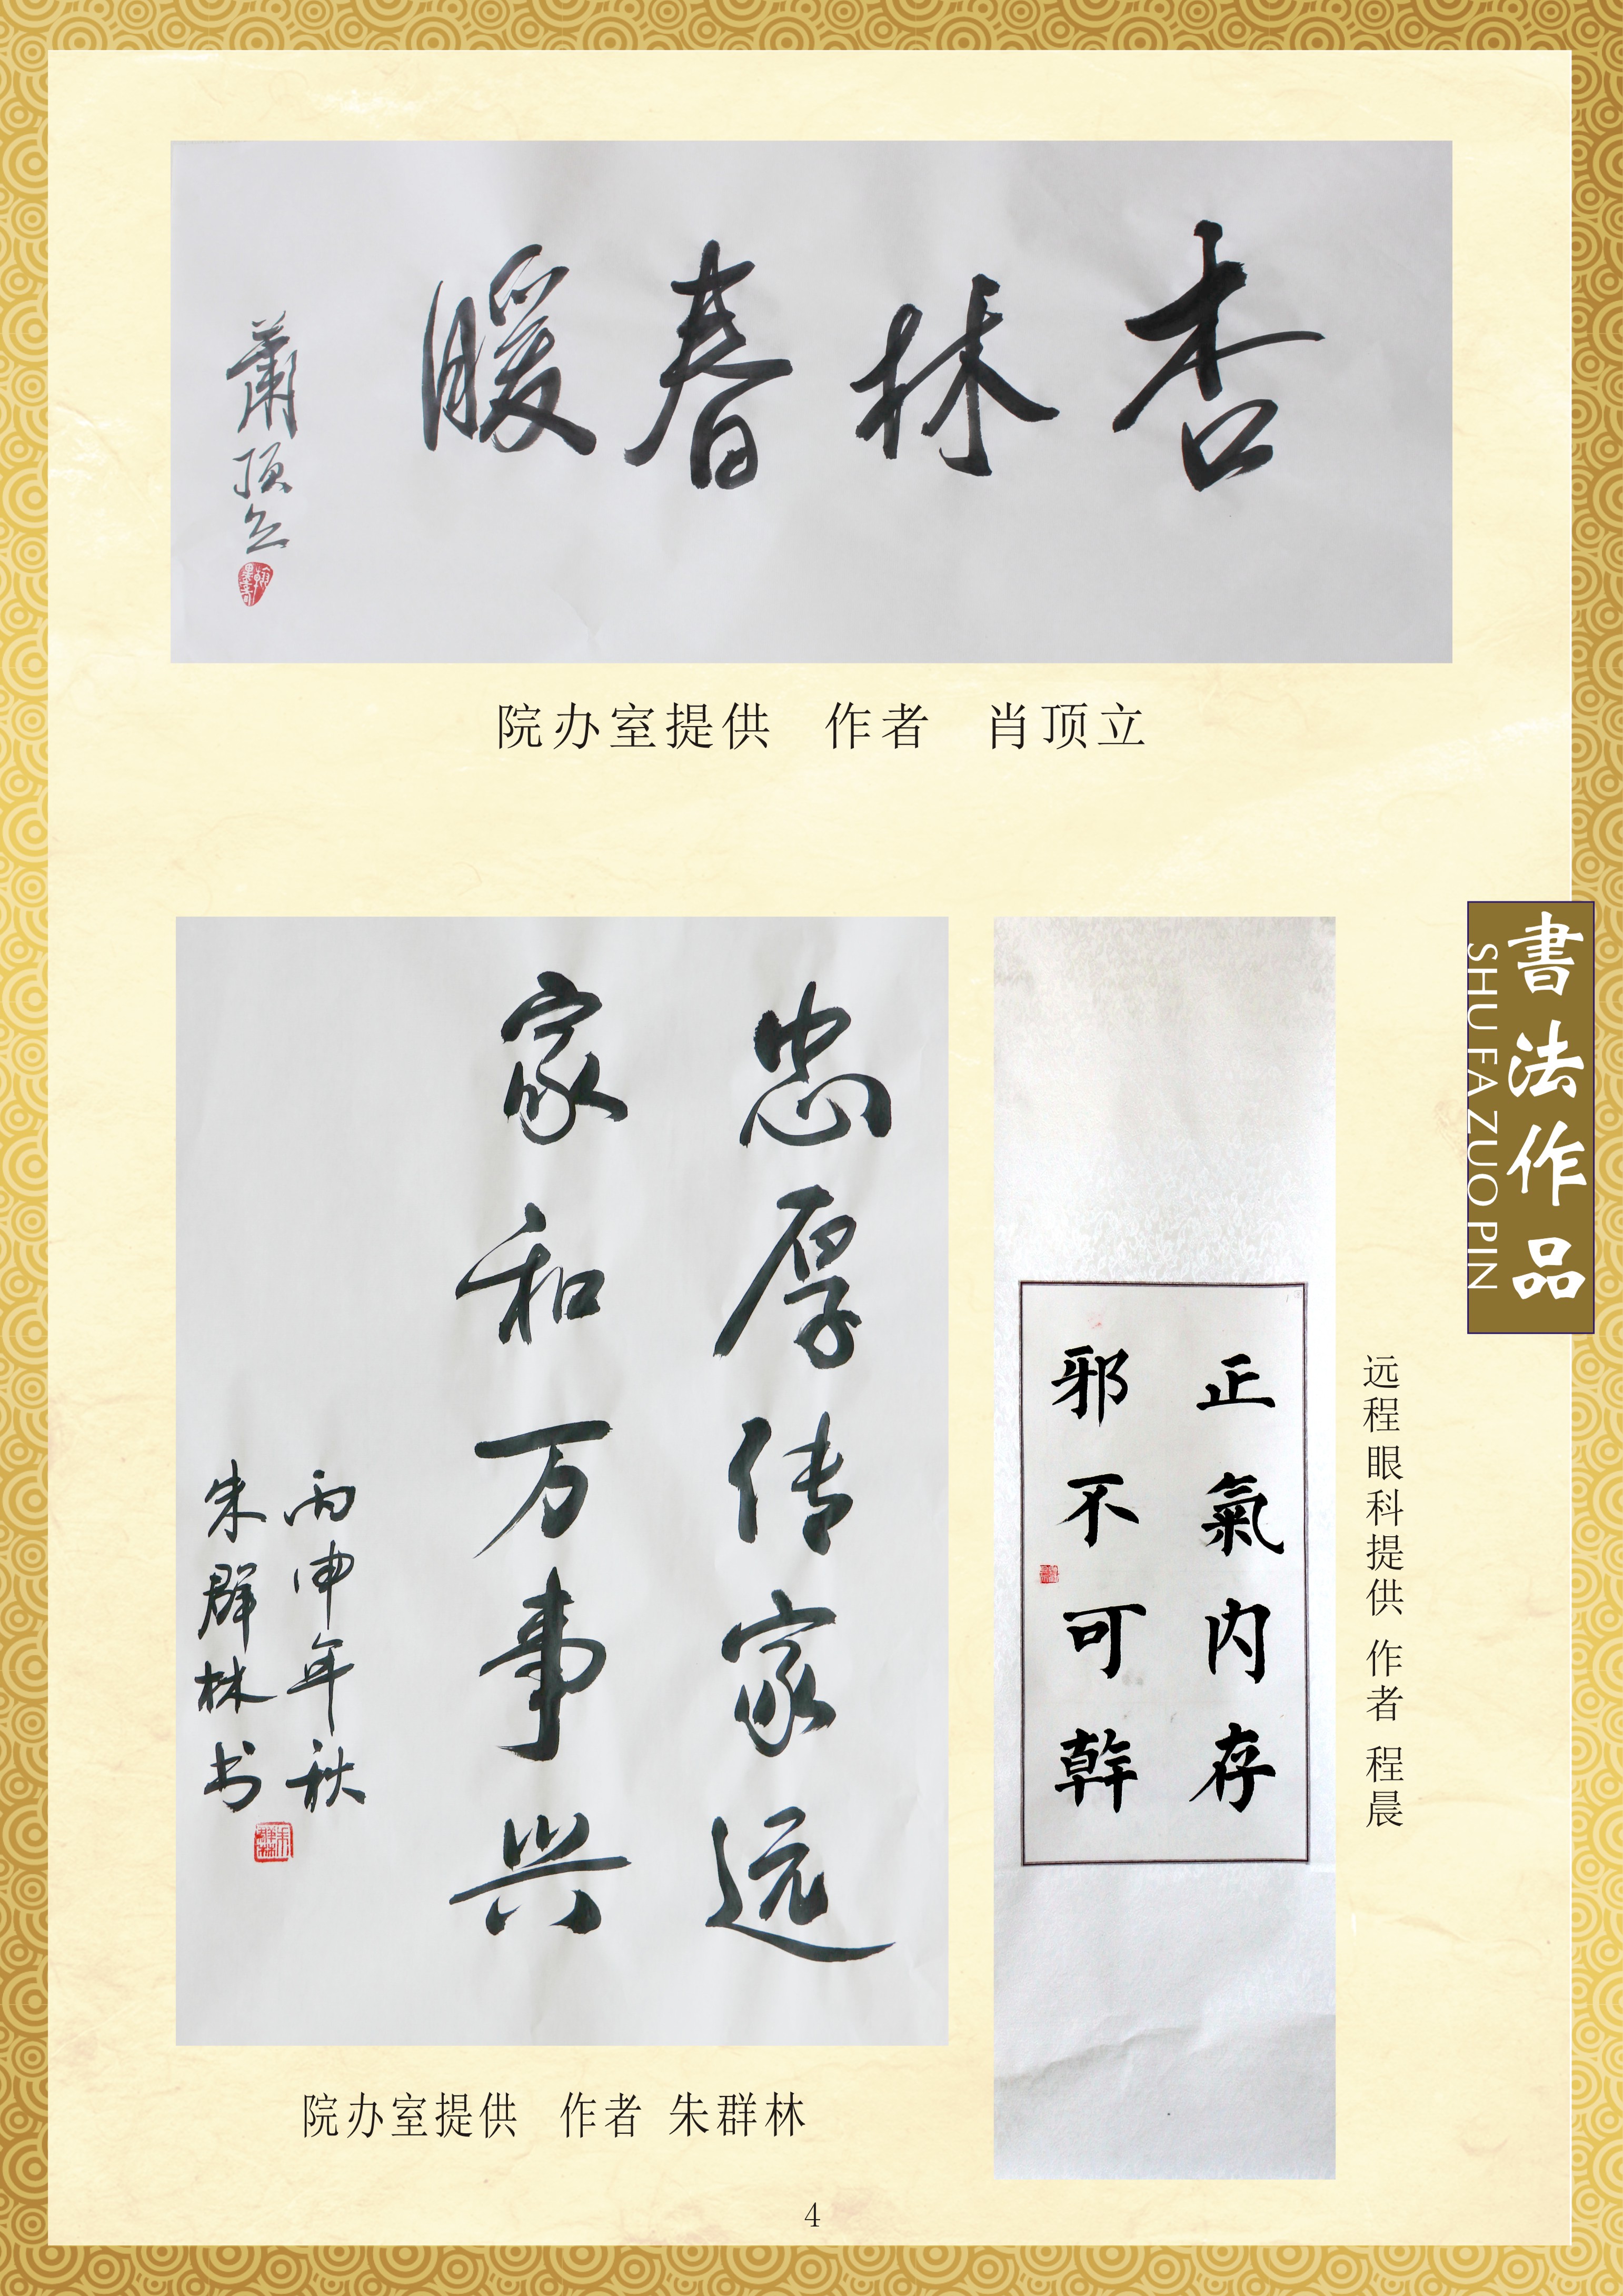 杏林春暖
萧顶立
院办室提供 作者 肖顶立
書法作品
SHU FA ZUO PIN
忠厚传家远
家和万事兴
丙申年秋
朱群林书
院办室提供 作者 朱群林
正氣内存
邪不可幹
远程眼科提供 作者 程晨
4